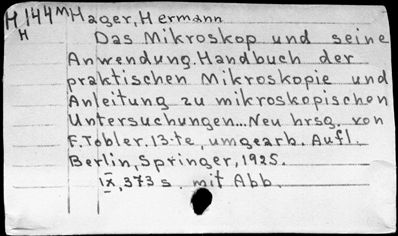 H 144 M Hager, Hermann
H Das Mikroskop und seine
Anwendung. Handbuch der
praktischen Mikroskopie und
Anleitung zu mikroskopischen
Untersuchungen...Neu hrsg. von
F. Tobler. 13-te, umgearb. Aufl.
Berlin, Springer, 1925.
IX, 373 s. mit Abb.